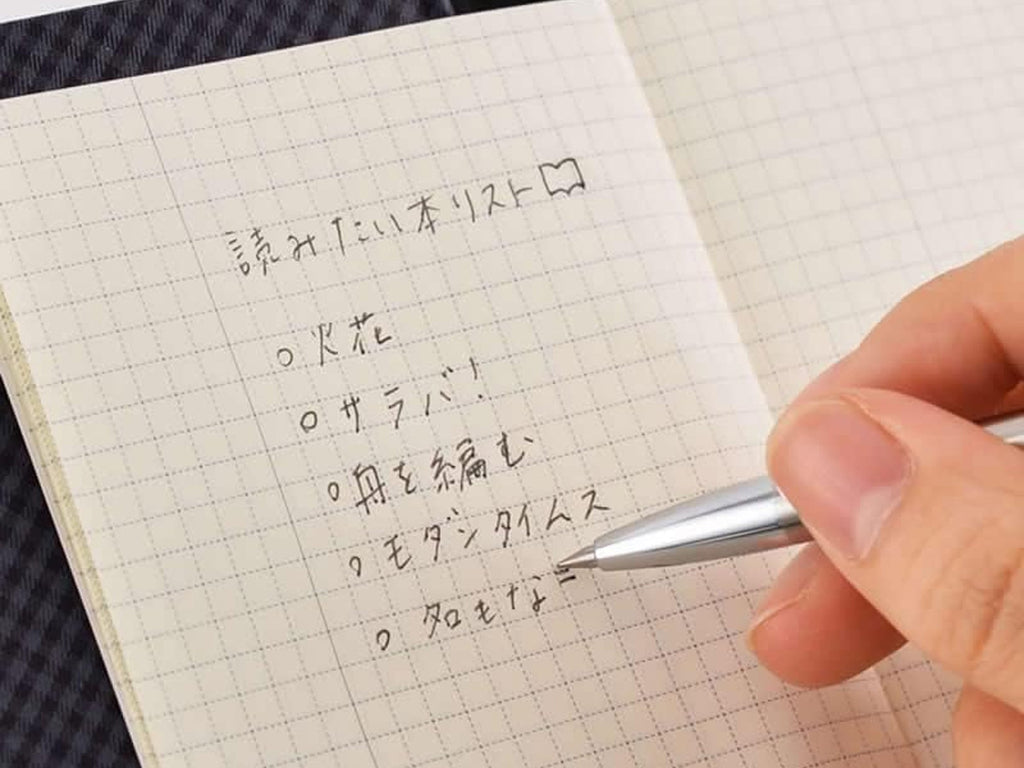 読みたい本リスト
○ 火花
○ サラバ!
○ 舟を編む
○ モダンタイムス
○ 名もな